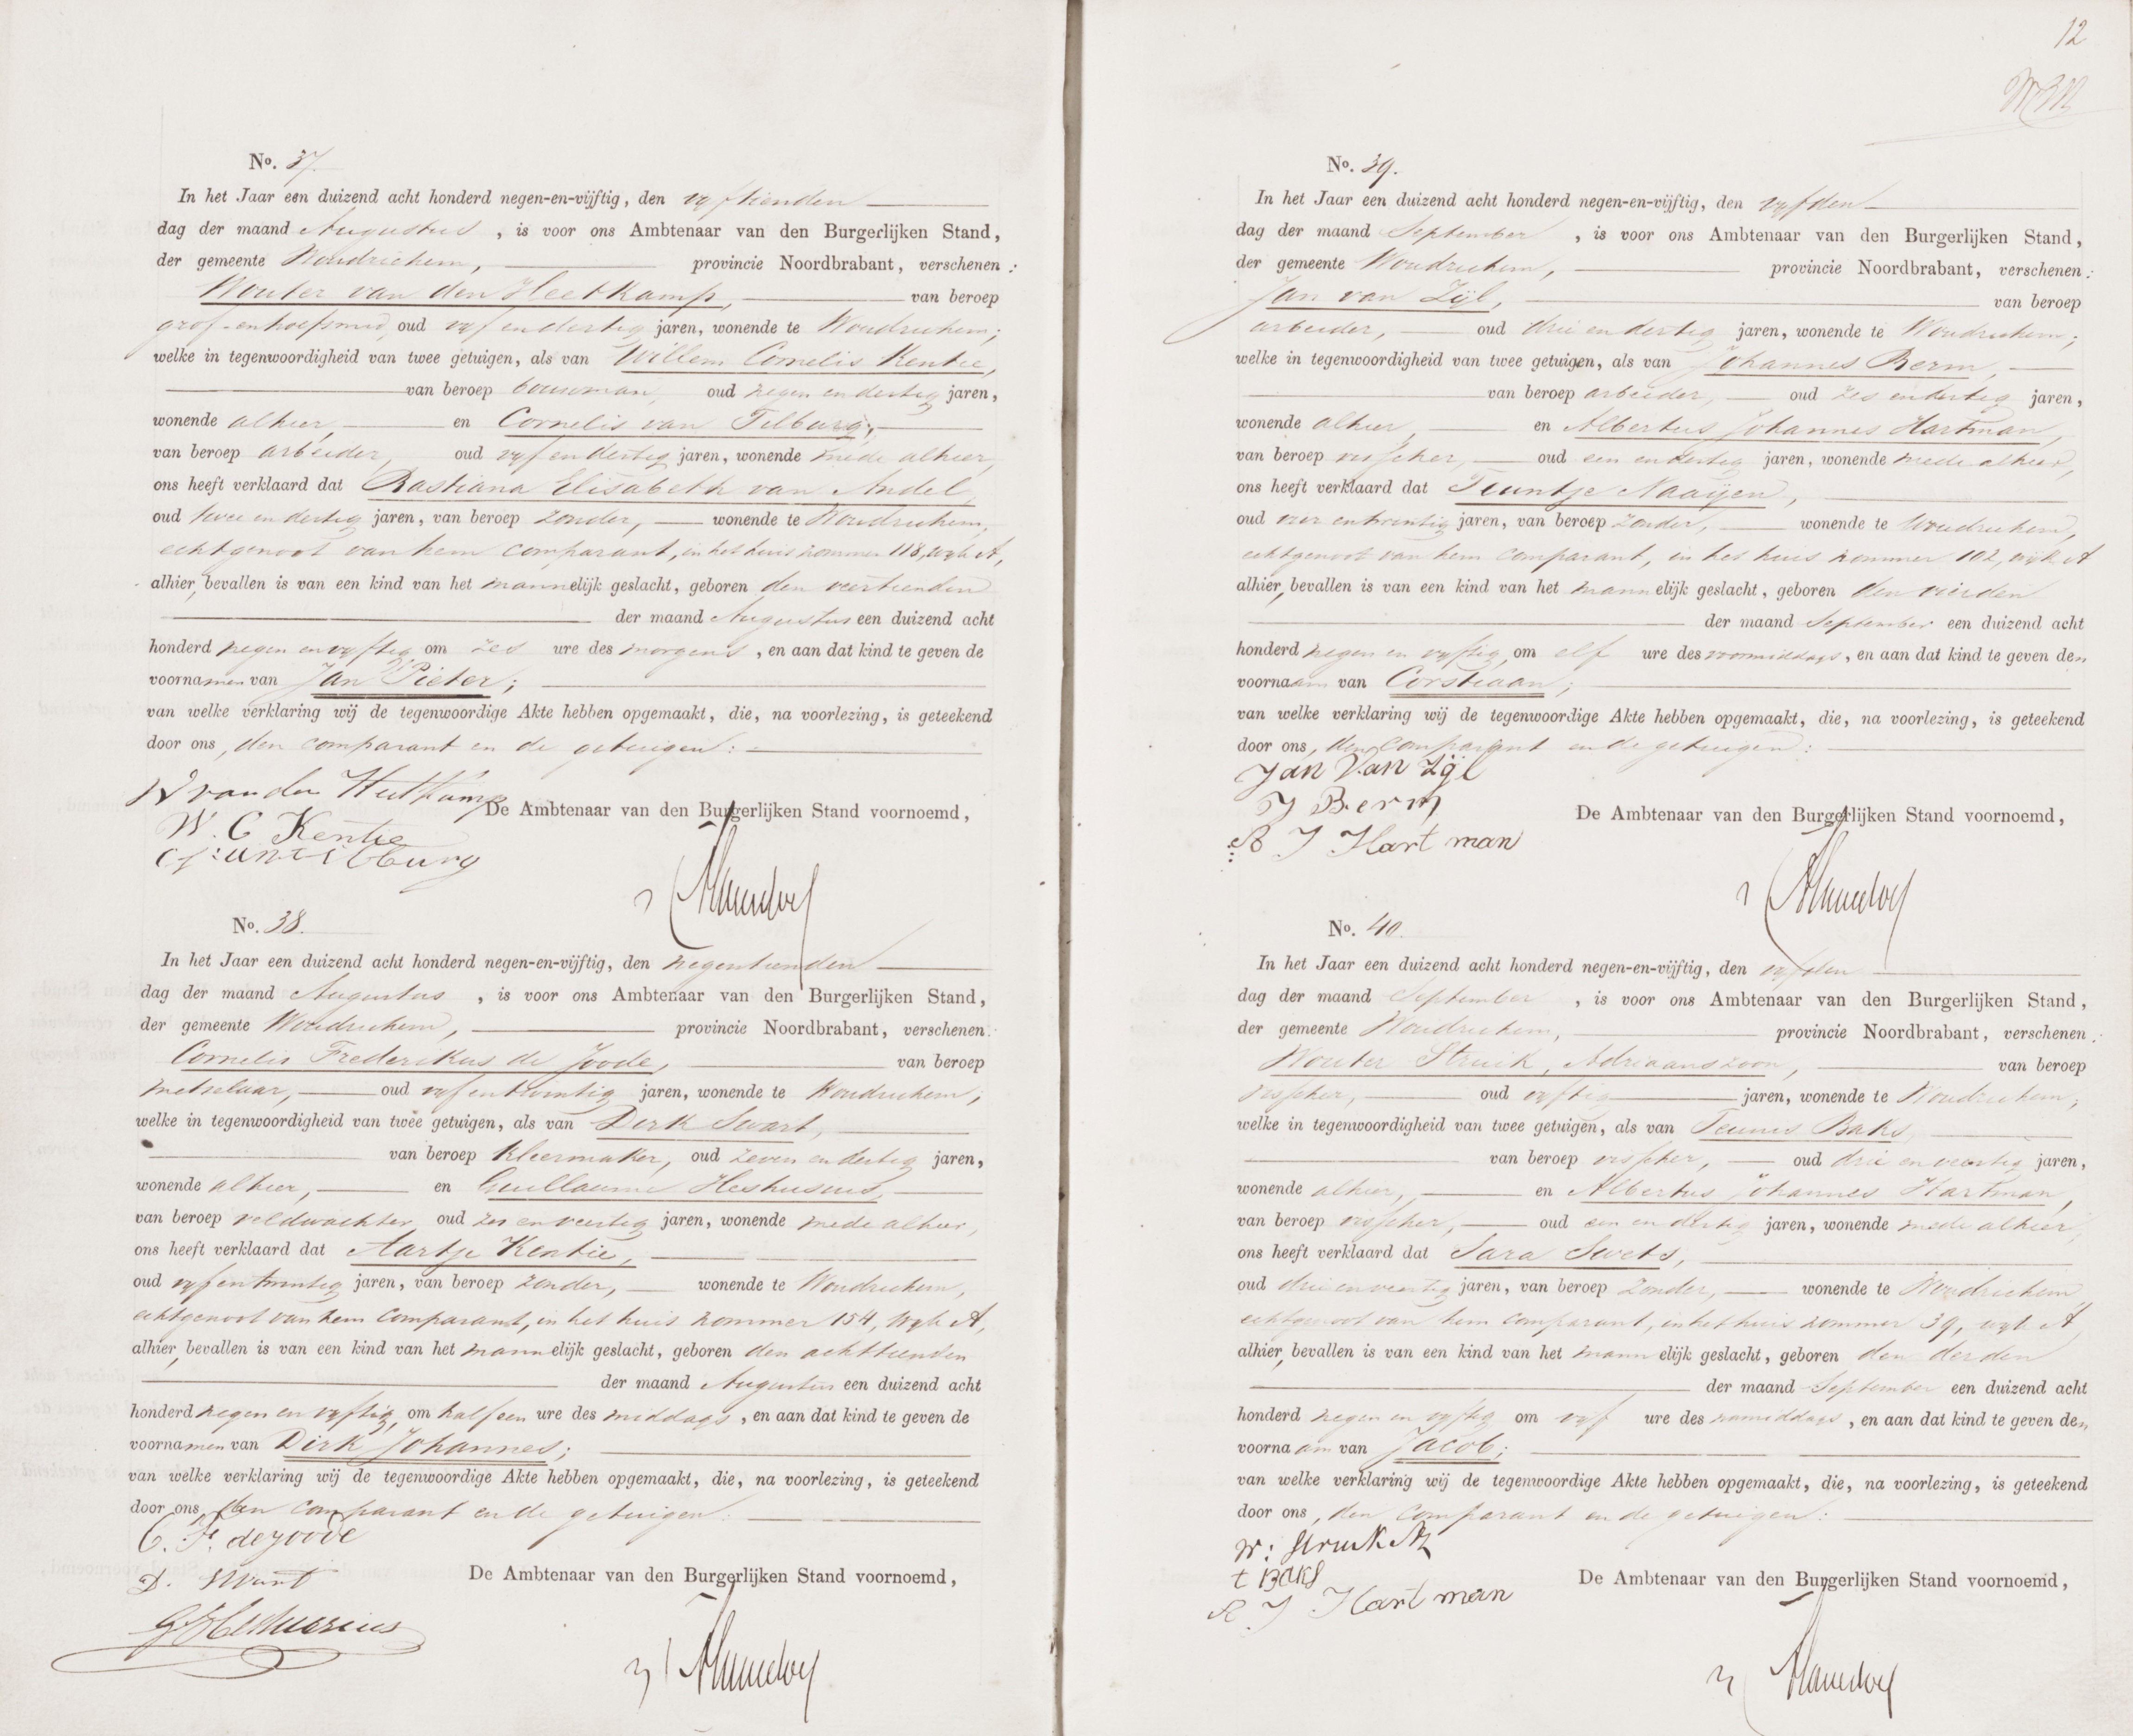 No. 37.
In het Jaar een duizend acht honderd negen-en-vijftig, den vyftienden
dag der maand Augustus , is voor ons Ambtenaar van den Burgerlijken Stand,
der gemeente Woudrichem, provincie Noordbrabant, verschenen :
Wouter van den Heetkamp, van beroep
grof- en hoefsmid, oud vyf en dertig jaren, wonende te Woudrichem;
welke in tegenwoordigheid van twee getuigen, als van Willem Cornelis Kentie,
van beroep bouwman, oud negen en dertig jaren,
wonende alhier, en Cornelis van Tilburg,
van beroep arbeider, oud vyf en dertig jaren, wonende mede alhier,
ons heeft verklaard dat Bastiana Elisabeth van Andel,
oud twee en dertig jaren, van beroep zonder, wonende te Woudrichem,
echtgenoot van hem comparant, in het huis nommer 118, wyk A,
alhier, bevallen is van een kind van het mannelijk geslacht, geboren den veertienden
der maand Augustus een duizend acht
honderd negen en vyftig om zes ure des morgens , en aan dat kind te geven de
voornamen van Jan Pieter;
van welke verklaring wij de tegenwoordige Akte hebben opgemaakt, die, na voorlezing, is geteekend
door ons, den comparant en de getuigen:
W van den Heetkamp
De Ambtenaar van den Burgerlijken Stand voornoemd,
W. C Kentie
C van Tilburg
No. 38.
In het Jaar een duizend acht honderd negen-en-vijftig, den negentienden
dag der maand Augustus , is voor ons Ambtenaar van den Burgerlijken Stand,
der gemeente Woudrichem, provincie Noordbrabant, verschenen:
Cornelis Frederikus de Joode, van beroep
metselaar, oud vyf en twintig jaren, wonende te Woudrichem;
welke in tegenwoordigheid van twee getuigen, als van Dirk Swart,
van beroep kleermaker, oud zeven en dertig jaren,
wonende alhier, en Guillaume Heshusius,
van beroep veldwachter, oud zes en veertig jaren, wonende mede alhier,
ons heeft verklaard dat Aartje Kentie,
oud vyf en twintig jaren, van beroep zonder, wonende te Woudrichem,
echtgenoot van hem comparant, in het huis nommer 154, wyk A,
alhier, bevallen is van een kind van het mannelijk geslacht, geboren den achttienden
der maand Augustus een duizend acht
honderd negen en vyftig, om half een ure des middags , en aan dat kind te geven de
voornamen van Dirk Johannes;
van welke verklaring wij de tegenwoordige Akte hebben opgemaakt, die, na voorlezing, is geteekend
door ons, den comparant en de getuigen:
C. F. de Joode
D. Swart
De Ambtenaar van den Burgerlijken Stand voornoemd,
G Heshusius
12
No. 39.
In het Jaar een duizend acht honderd negen-en-vijftig, den vyfden
dag der maand September , is voor ons Ambtenaar van den Burgerlijken Stand,
der gemeente Woudrichem, provincie Noordbrabant, verschenen:
Jan van Zijl, van beroep
arbeider, oud drie en dertig jaren, wonende te Woudrichem;
welke in tegenwoordigheid van twee getuigen, als van Johannes Berm,
van beroep arbeider, oud zes en dertig jaren,
wonende alhier, en Albertus Johannes Hartman,
van beroep visscher, oud een en dertig jaren, wonende mede alhier,
ons heeft verklaard dat Teuntje Naaijen,
oud vier en twintig jaren, van beroep zonder, wonende te Woudrichem,
echtgenoot van hem comparant, in het huis nommer 102, wijk A
alhier, bevallen is van een kind van het mannelijk geslacht, geboren den vierden
der maand September een duizend acht
honderd negen en vyftig, om elf ure des voormiddags, en aan dat kind te geven den
voornaam van Corstiaan;
van welke verklaring wij de tegenwoordige Akte hebben opgemaakt, die, na voorlezing, is geteekend
door ons, den comparant en de getuigen:
Jan Van Zijl
J Berm
De Ambtenaar van den Burgerlijken Stand voornoemd,
A J Hartman
No. 40.
In het Jaar een duizend acht honderd negen-en-vijftig, den vyfden
dag der maand September , is voor ons Ambtenaar van den Burgerlijken Stand,
der gemeente Woudrichem, provincie Noordbrabant, verschenen:
Wouter Struik, Adriaanszoon, van beroep
visscher, oud vyftig jaren, wonende te Woudrichem;
welke in tegenwoordigheid van twee getuigen, als van Teunis Baks,
van beroep visscher, oud drie en veertig jaren,
wonende alhier, en Albertus Johannes Hartman,
van beroep visscher, oud een en dertig jaren, wonende mede alhier,
ons heeft verklaard dat Sara Swets,
oud drie en veertig jaren, van beroep zonder, wonende te Woudrichem
echtgenoot van hem comparant, in het huis nommer 39, wyk A,
alhier, bevallen is van een kind van het mannelijk geslacht, geboren den derden
der maand September een duizend acht
honderd negen en vyftig om vyf ure des namiddags , en aan dat kind te geven den
voornaam van Jacob;
van welke verklaring wij de tegenwoordige Akte hebben opgemaakt, die, na voorlezing, is geteekend
door ons, den comparant en de getuigen:
W: Struik Az
t Baks
De Ambtenaar van den Burgerlijken Stand voornoemd,
A J Hartman